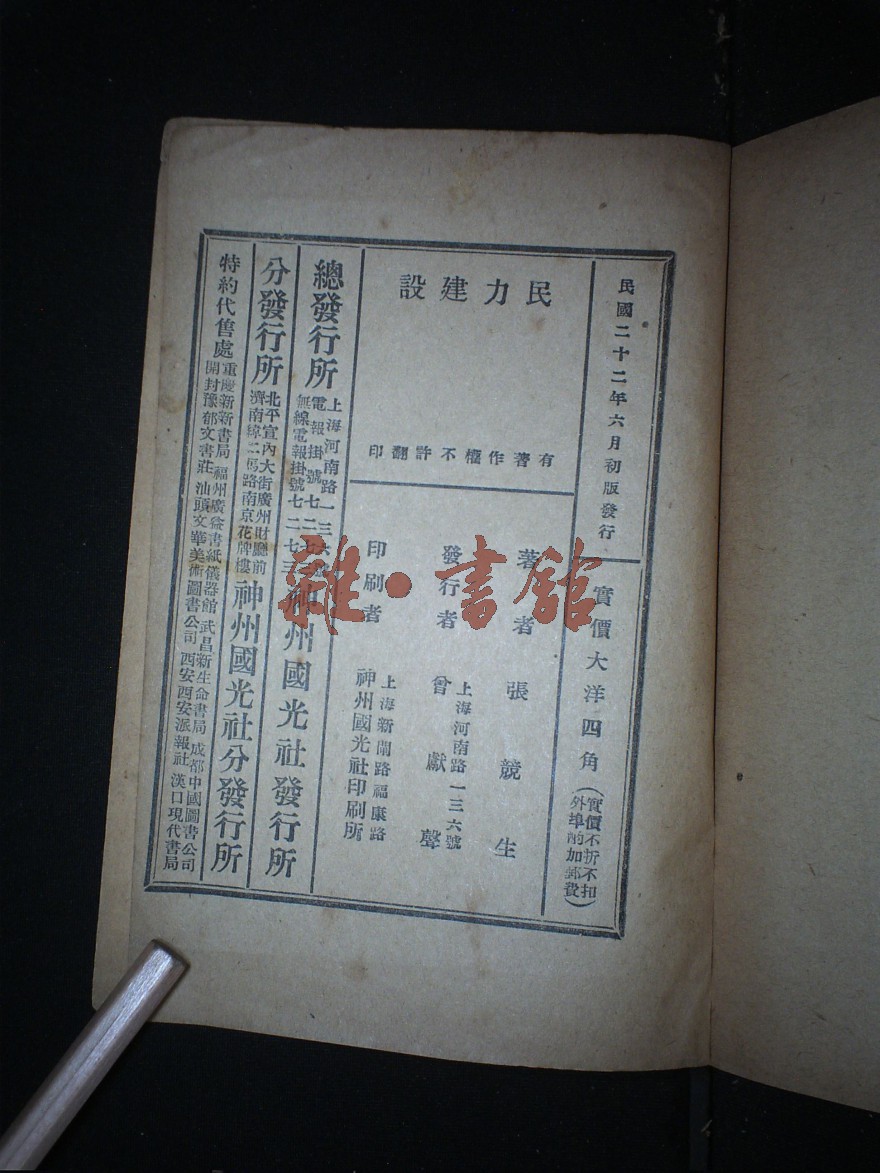 民國二十二年六月初版發行
實價大洋四角(實價不折不扣
外埠酌加郵費)
民力建設
有著作權不許翻印
著者 張競生
發行者 上海河南路一三六號
曾獻聲
印刷者 上海新閘路福康路
神州國光社印刷所
總發行所 上海河南路一三六號
電報掛號七二七三
無線電報掛號七二七三
神州國光社發行所
分發行所 北平宣內大街廣州財廳前
濟南緯二馬路南京花牌樓
神州國光社分發行所
特約代售處 重慶新新書局 福州廣益書紙儀器館 武昌新生命書局 成都中國圖書公司
開封豫郁文書莊 汕頭文華美術圖書公司 西安西安派報社 漢口現代書局
雜·書館